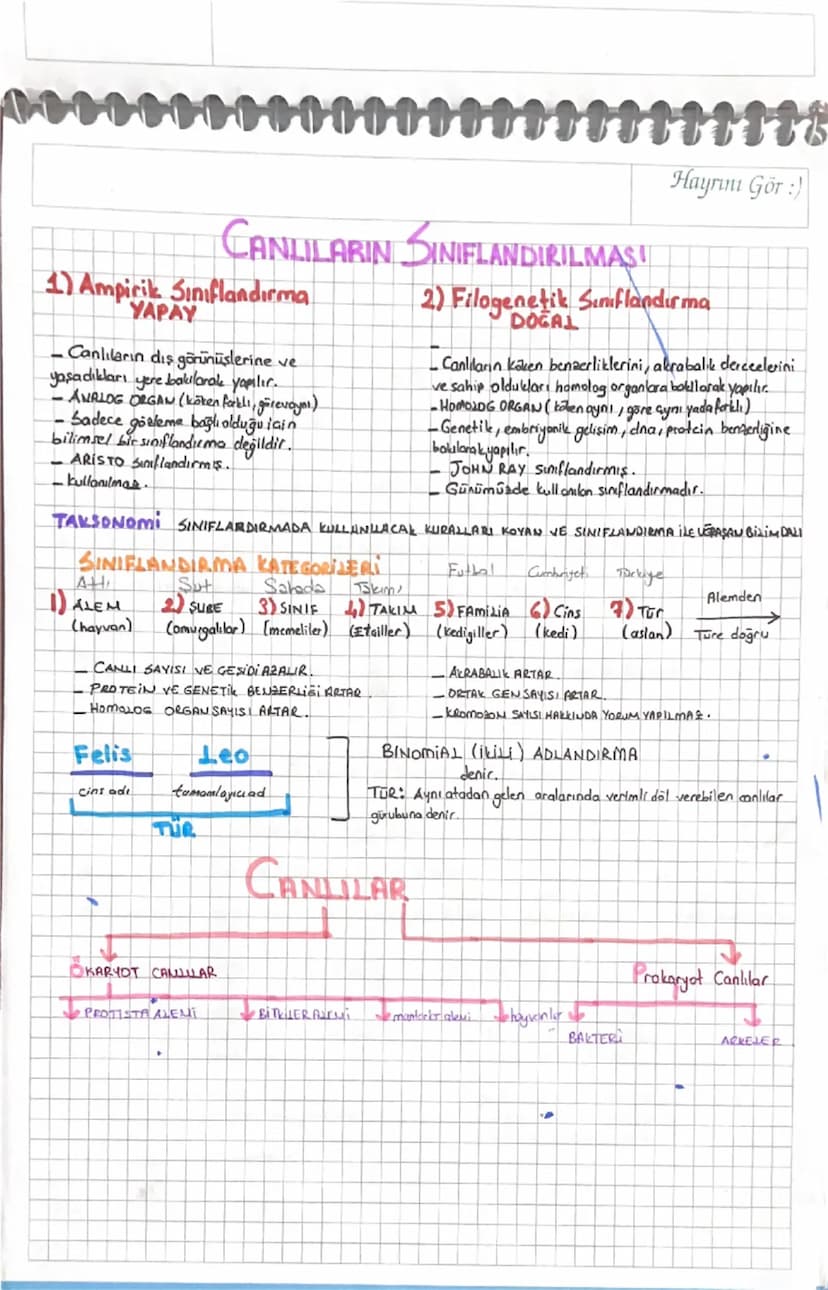 Hayrını Gör :)
CANLILARIN SINIFLANDIRILMASI
1) Ampirik Sınıflandırma
YAPAY
– Canlıların dış görünüşlerine ve
yaşadıkları yere bakılarak yapılır.
– ANALOG ORGAN (köken farklı, görev aynı)
– Sadece gözleme bağlı olduğu için
bilimsel bir sınıflandırma değildir.
– ARİSTO sınıflandırmış.
– Kullanılmaz.
2) Filogenetik Sınıflandırma
DOĞAL
– Canlıların köken benzerliklerini, akrabalık derecelerini
ve sahip oldukları homolog organlara bakılarak yapılır.
– HOMOLOG ORGAN (köken aynı, göre aynı yada farklı)
– Genetik, embriyonik gelişim, dna, protein benzerliğine
bakılarak yapılır.
– JOHN RAY sınıflandırmış.
– Günümüzde kullanılan sınıflandırmadır.
TAKSONOMİ SINIFLARDIRMADA KULLANILACAK KURALLARI KOYAN VE SINIFLANDIRMA İLE UĞRAŞAN BİLİM DALI
SINIFLANDIRMA KATEGORİLERİ
Şut Sahada Takım Futbol Cumhuriyeti Türkiye
1) ALEM 2) ŞUBE 3) SINIF 4) TAKIM 5) FAMİLİA 6) Cins 7) Tür Alemden
(hayvan) (omurgalılar) (memeliler) (Etçiller) (kedigiller) (kedi) (aslan) Türe doğru
– CANLI SAYISI VE ÇEŞİDİ AZALIR.
– PROTEİN VE GENETİK BENZERLİĞİ ARTAR.
– HOMOLOG ORGAN SAYISI ARTAR.
– AKRABALIK ARTAR.
– ORTAK GEN SAYISI ARTAR.
– KROMOZOM SAYISI HAKKINDA YORUM YAPILMAZ.
Felis Leo
cins adı tamamlayıcı ad
TÜR
BINOMİAL (İKİLİ) ADLANDIRMA
denir.
TÜR: Aynı atadan gelen aralarında verimli döl verebilen canlılar
gurubuna denir.
CANLILAR
ÖKARYOT CANLILAR Prokaryot Canlılar
PROTİSTA ALEMİ BİTKİLER ALEMİ mantarlar alemi hayvanlar
BAKTERİ ARKELER